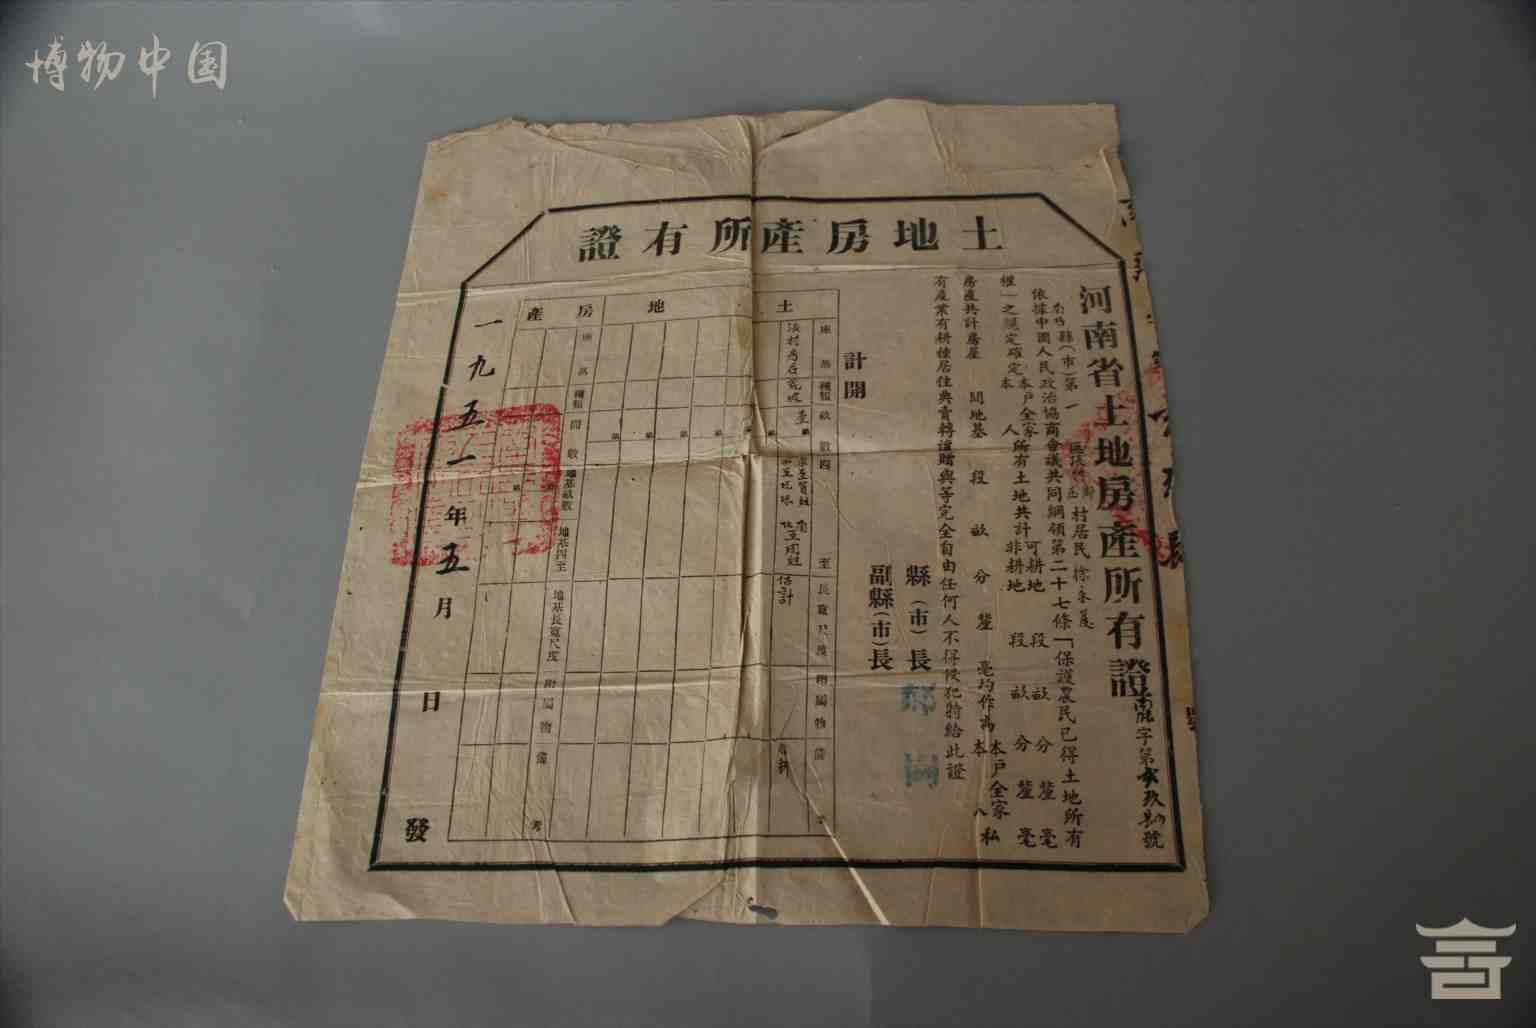 博物中国
土地房產所有證
河南省土地房產所有證
字第
號
縣(市)第一
村居民徐
依據中國人民政治協商會議共同綱領第二十七條「保護農民已得土地所有
權」之規定確定本戶全家
本人
所有土地共計可耕地 段 畝 分 釐 毫
非耕地 段 畝 分 釐 毫
房產共計房屋 間地基 段 畝 分 釐 毫均作為本戶全家
本人
私
有產業有耕種居住典賣轉讓贈與等完全自由任何人不得侵犯特給此證
縣(市)長
副縣(市)長
計開
土地
座落
種類
畝數
四至
長寬尺度
附屬物
備考
估計
房產
座落
種類
間數
地基畝數
地基四至
地基長寬尺度
附屬物
備考
一九五一年五月 日 發